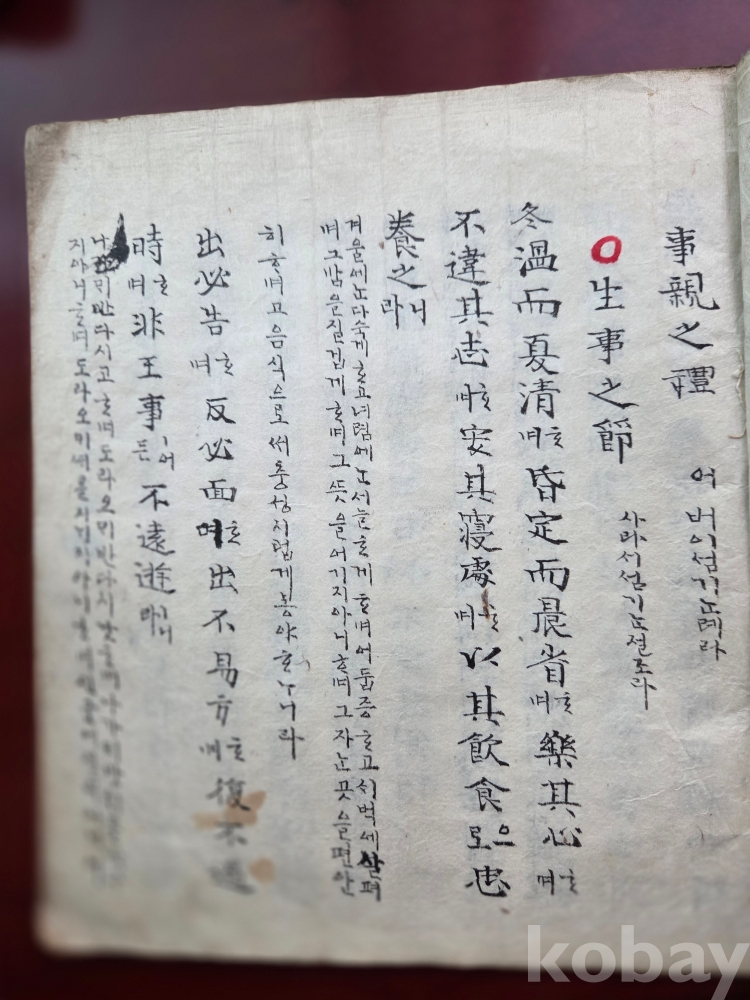 事親之禮 어버이섬기는례라
○生事之節 사라서섬기는절조라
冬溫而夏清ᄒᆞ며昏定而晨省ᄒᆞ며樂其心ᄒᆞ며
不違其志ᄒᆞ며安其寢處ᄒᆞ며以其飮食으로忠
養之니라
겨을에는다숩게ᄒᆞ고녀름에는서늘ᄒᆞ게ᄒᆞ며어둡증ᄒᆞ고시벽에살펴
며그맘을질겁게ᄒᆞ며그뜻을어기지아니ᄒᆞ며그자는곳을편안
히ᄒᆞ며고음식으로써충성지럽게봉야ᄒᆞᄂᆞ니라
出必告ᄒᆞ며反必面ᄒᆞ며出不易方ᄒᆞ며復不過
時ᄒᆞ며非王事ㅣ어든不遠遊ㅣ니라
반다시고ᄒᆞ며도라오미반다시
지아니ᄒᆞ며도라오미
kobay